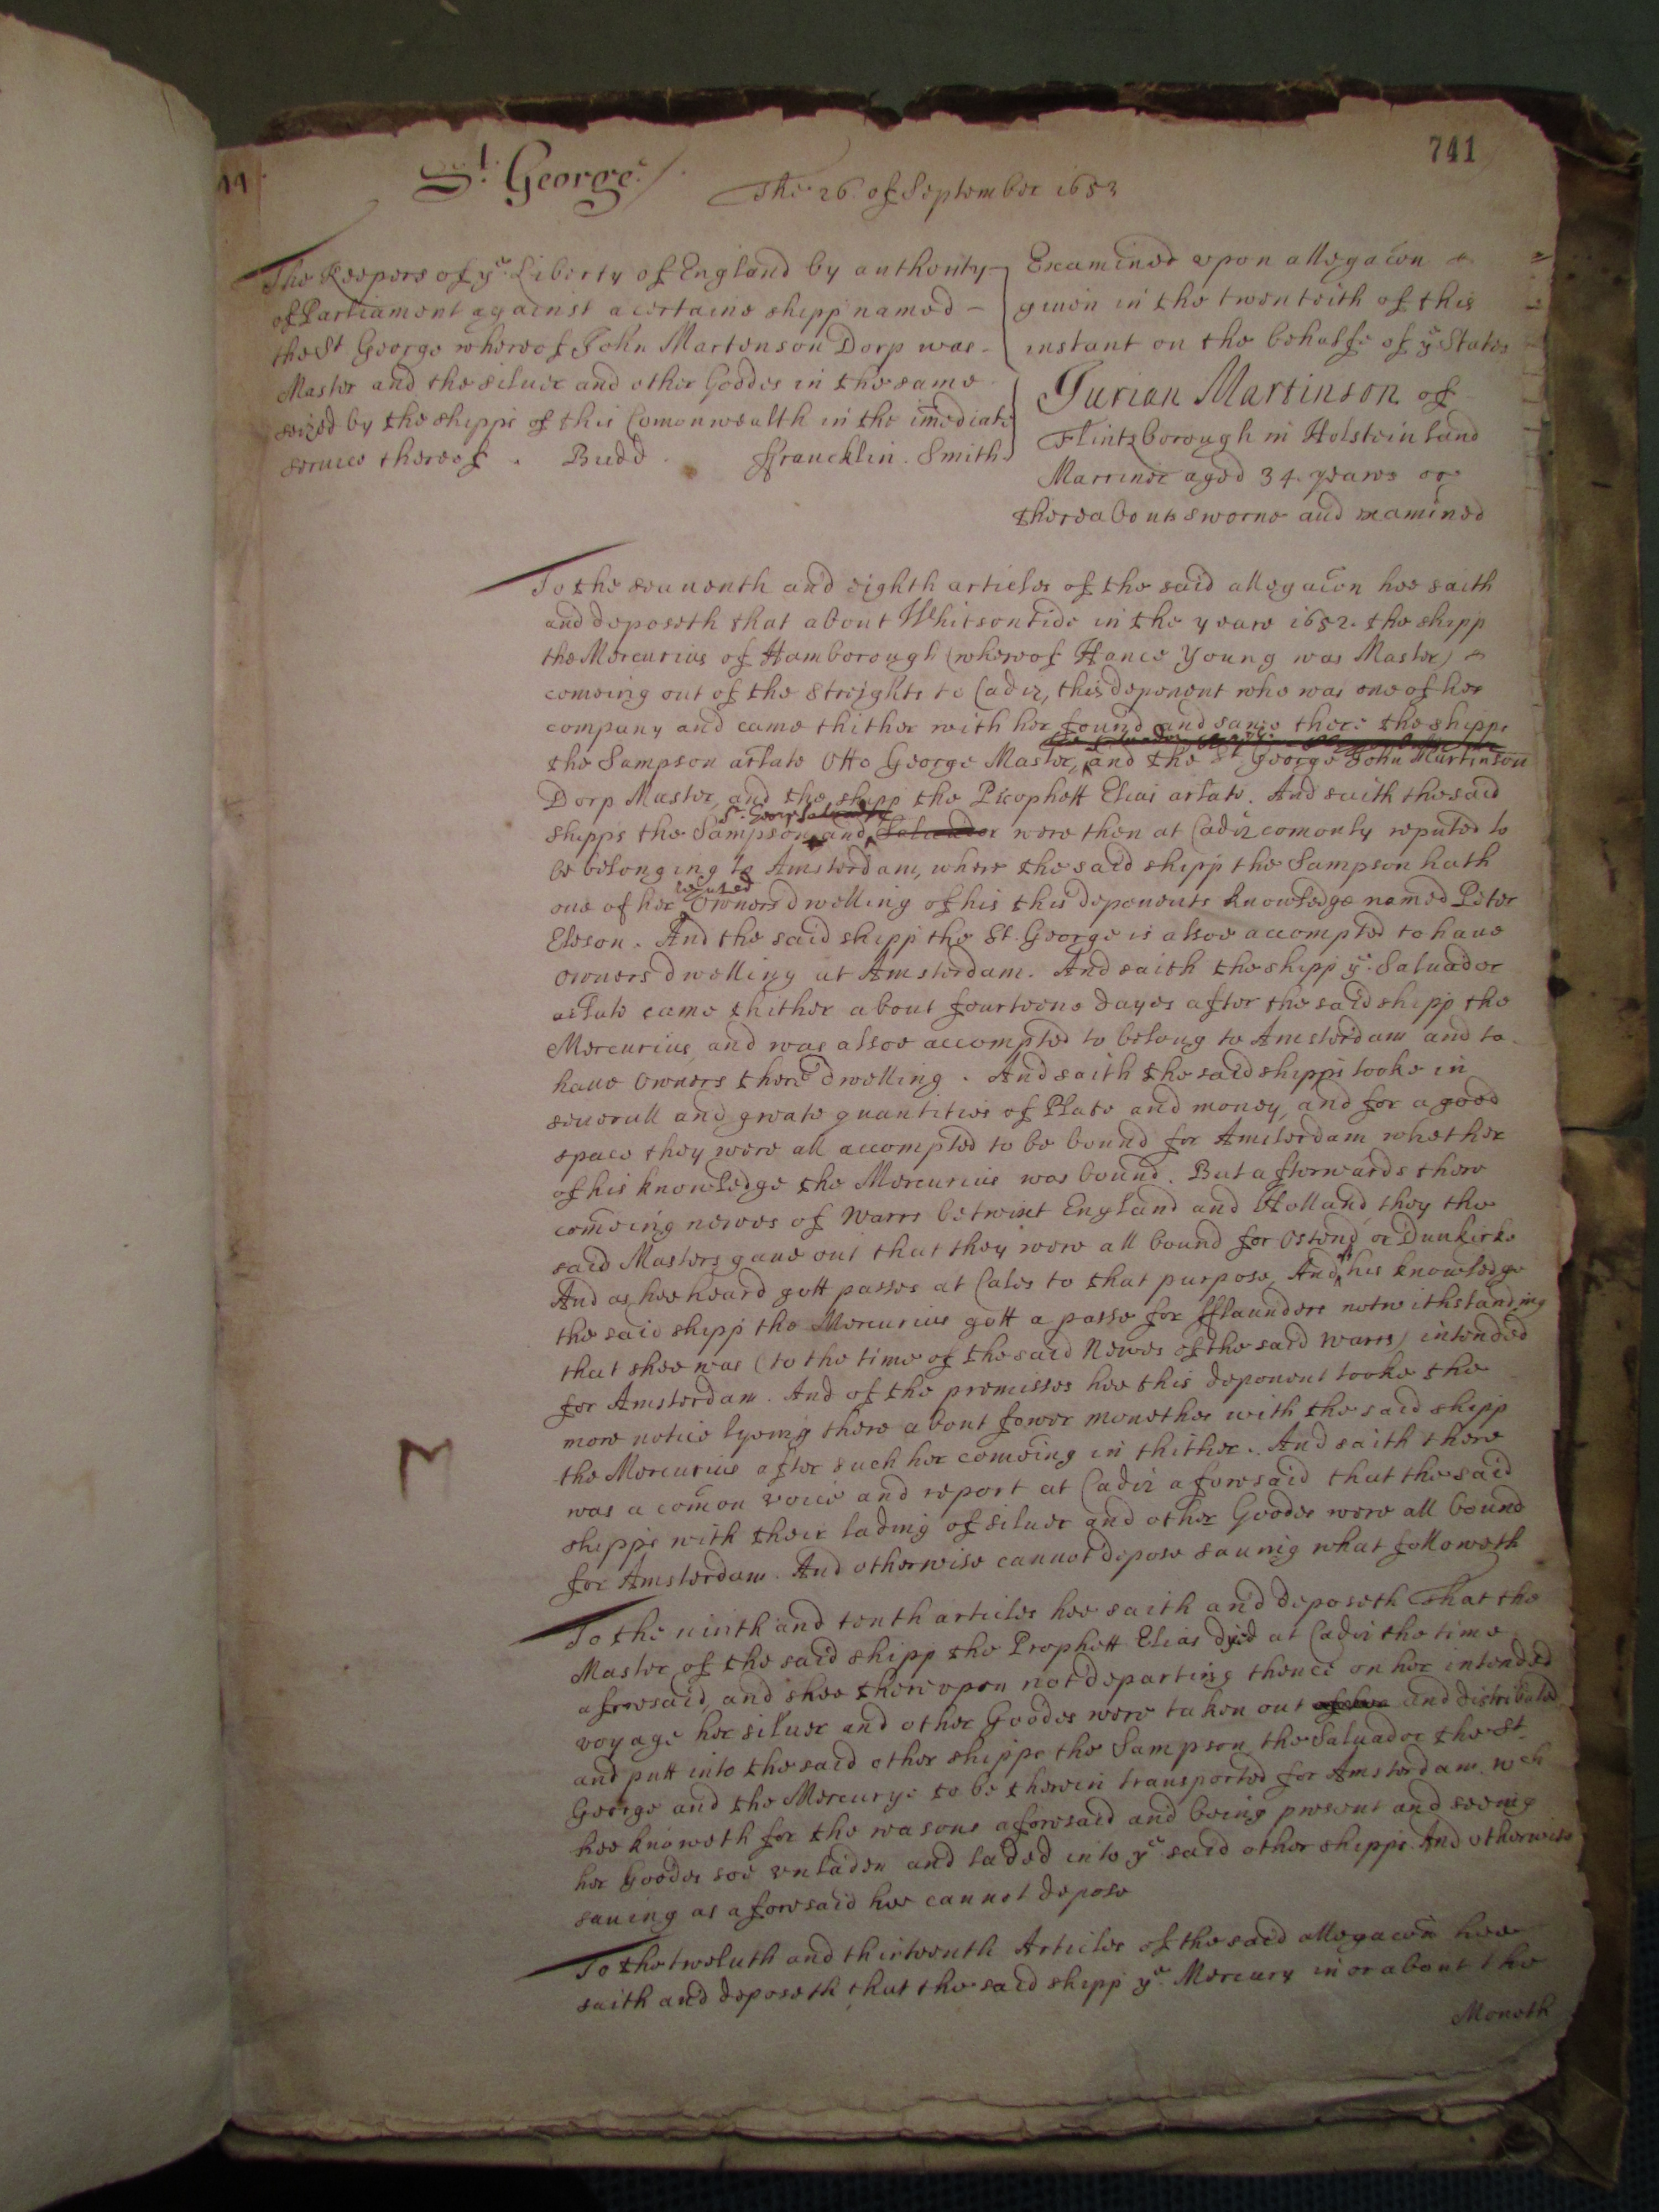 741
St. George
The 26 of September 1653
The Keepers of ye Liberty of England by authority
of Parliament against a certaine shipp named -
the St George whereof John Martenson Dorp was
Master and the siluer and other Goodes in the same
seized by the shipps of this Comonwealth in the imediate
seruice thereof . Budd . ffrancklin . Smith.
Examined upon allegacon
giuen in the twenteith of this
instant on the behalfe of ye States
Jurian Martinson of
Flintzborough in Holsteinland
Marriner aged 34 yeares or
thereabouts sworne and examined
To the seauenth and eighth articles of the said allegacon hee saith
and deposeth that about Whitsontide in the yeare 1652. the shipp
the Mercurius of Hamborough (whereof Hance Young was Master)
comeing out of the Streights to Cadiz, this deponent who was one of her
company and came thither with her found and sawe there the shipps
the Sampson arlate Otto George Master, and the St George John Martinson
Dorp Master, and the shipp the Prophett Elias arlate. And saith the said
shipps the Sampson and St. George were then at Cadiz comonly reputed to
be belonging to Amsterdam, where the said shipp the Sampson hath
one of her reputed Owners dwelling of his this deponents knowledge named Peter
Eleson. And the said shipp the St. George is alsoe accompted to haue
owners dwelling at Amsterdam. And saith the shipp ye Saluador
arlate came thither about fourteene dayes after the said shipp the
Mercurius, and was alsoe accompted to belong to Amsterdam and to
haue Owners there dwelling. And saith the said shipps tooke in
seuerall and greate quantities of Plate and money, and for a good
space they were all accompted to be bound for Amsterdam whether
of his knowledge the Mercurius was bound. But afterwards there
comeing newes of Warrs betwixt England and Holland, they the
said Masters gaue out that they were all bound for Ostend or Dunkirke
And as hee heard gott passes at Cales to that purpose, And of his knowledge
the said shipp the Mercurius gott a passe for fflaunders notwithstanding
that shee was (to the time of the said Newes of the said warrs) intended
for Amsterdam. And of the premisses hee this deponent tooke the
more notice lyeing there about fower monethes with the said shipp
the Mercurius after such her comeing in thither. And saith there
was a comon voice and report at Cadiz aforesaid that the said
shipps with their lading of siluer and other Goodes were all bound
for Amsterdam. And otherwise cannot depose sauing what followeth
To the ninth and tenth articles hee saith and deposeth That the
Master of the said shipp the Prophett Elias dyed at Cadiz the time
aforesaid, and shee thereupon not departing thence on her intended
voyage her siluer and other Goodes were taken out and distributed
and putt into the said other shipps the Sampson, the Saluador the St.
George and the Mercurye to be therein transported for Amsterdam. wch
hee knoweth for the reasons aforesaid and being present and seeing
her Goodes soe vnladen and laded into ye said other shipps. And otherwise
sauing as aforesaid hee cannot depose
To the twelueth and thirteenth Articles of the said allegacon hee
saith and deposeth that the said shipp ye Mercury in or about the
Moneth